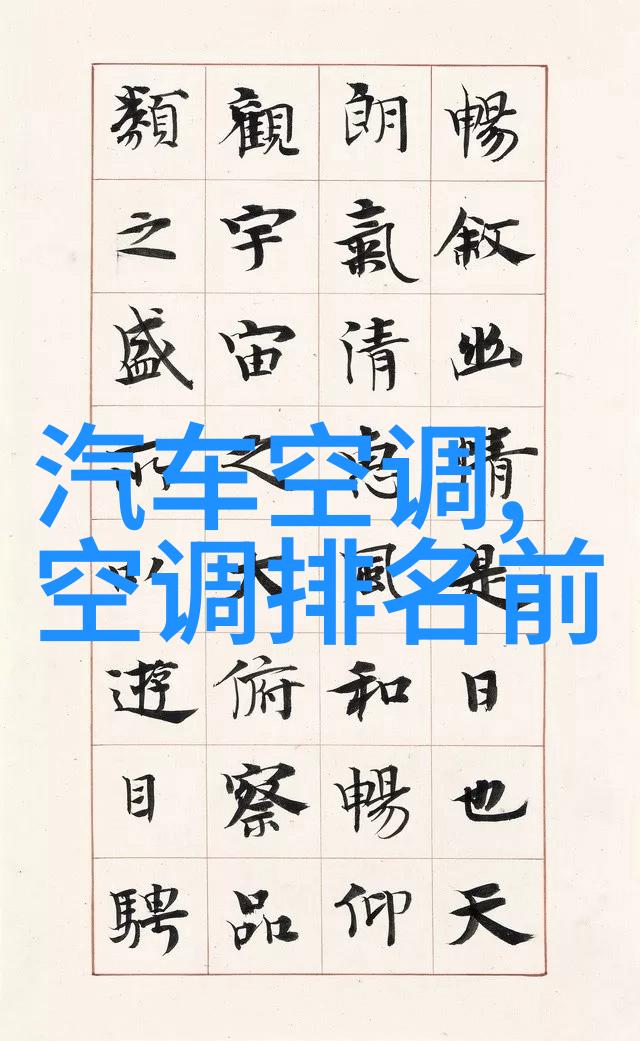 暢敘幽情是日也天
朗氣清惠風和暢仰
觀宇宙之大俯察品
類之盛所以遊目騁
汽车空调,
空调排名前